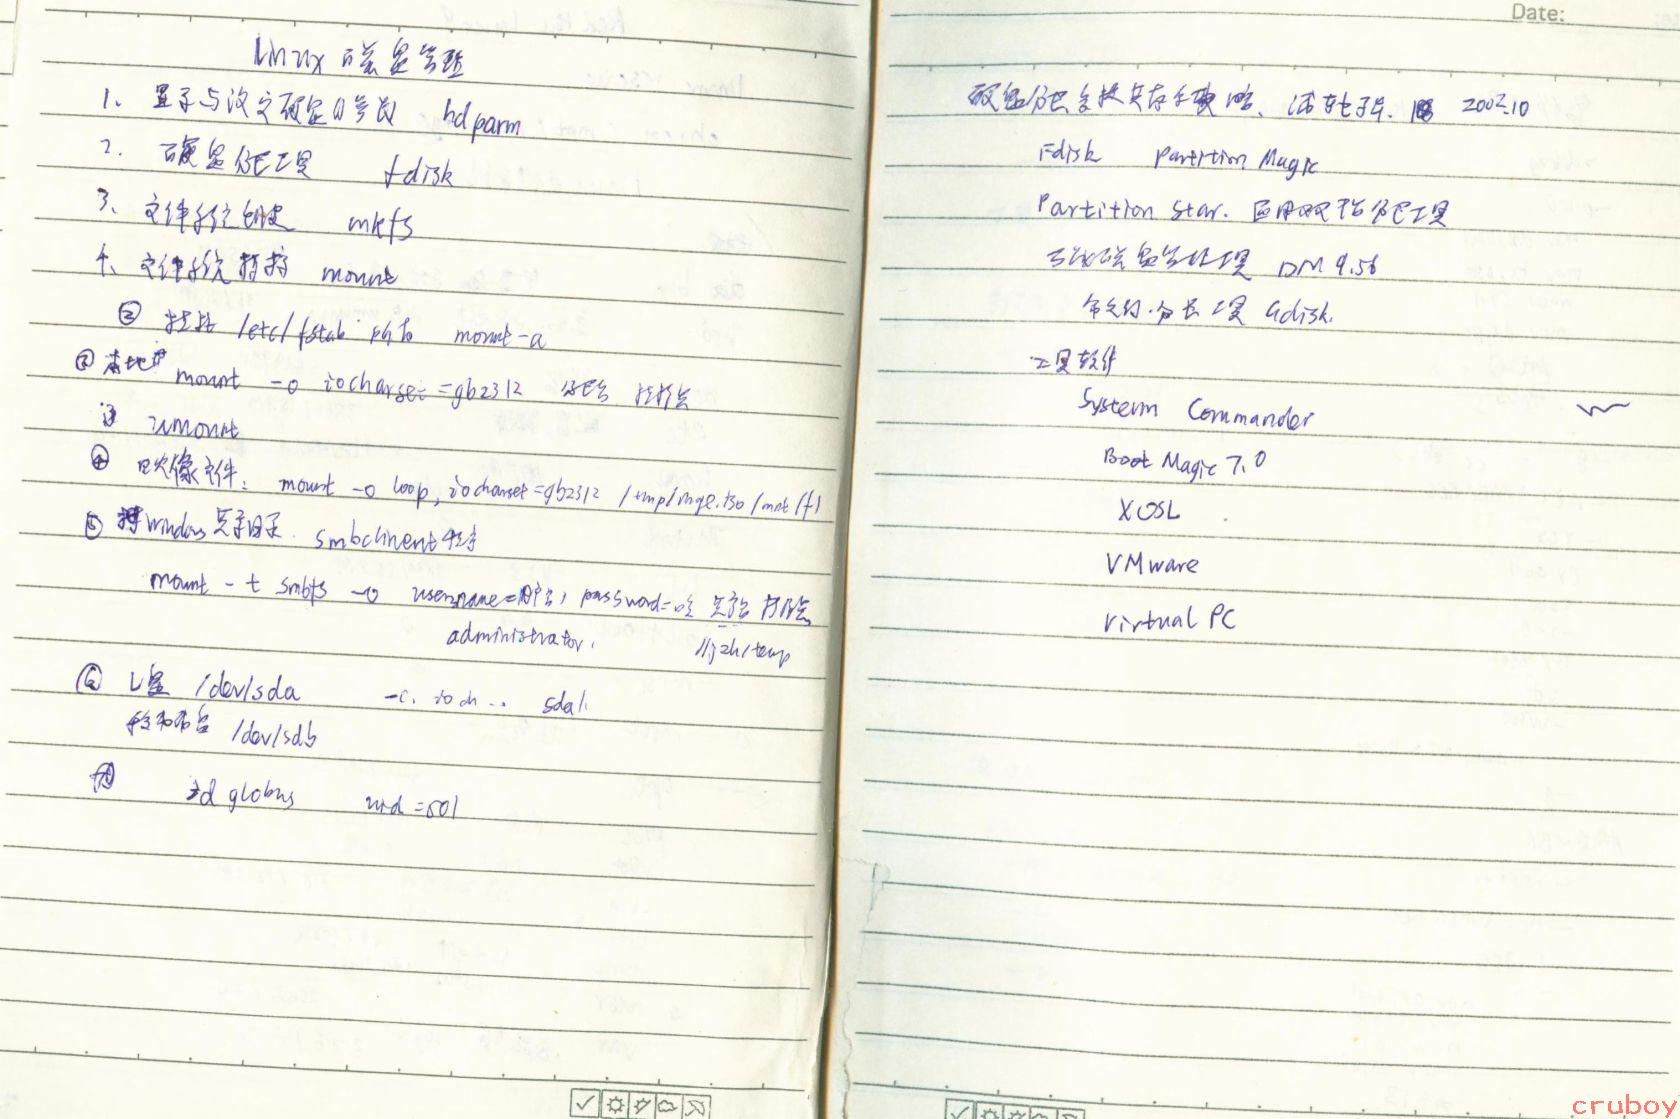 Linux 磁盘管理
1、显示与设定硬盘的参数 hdparm
2. 硬盘分区工具 fdisk
3、文件系统创建 mkfs
4、文件系统挂接 mount
挂接 /etc/fstab mount -a
② 本地 mount -o iocharset=gb2312 分区名 挂接点
③ umount
④ 映像文件: mount -o loop, iocharset=gb2312 /tmp/mge.iso /mnt/f1
⑤ windows共享目录. smbclinent程序
mount -t smbfs -o username=用户名, password= 共享名 挂接点
administrator. //jzh/temp
⑥ U盘 /dev/sda -o. ioch... sda1.
移动 /dev/sdb
id globus uid=501
Date:
硬盘分区 2002.10
Fdisk Partition Magic
Partition Star. 应用 分区工具
磁盘管理工具 DM 9.56
分区工具 Gdisk.
工具软件
System Commander
Boot Magic 7.0
XOSL
VMware
Virtual PC
cruboy